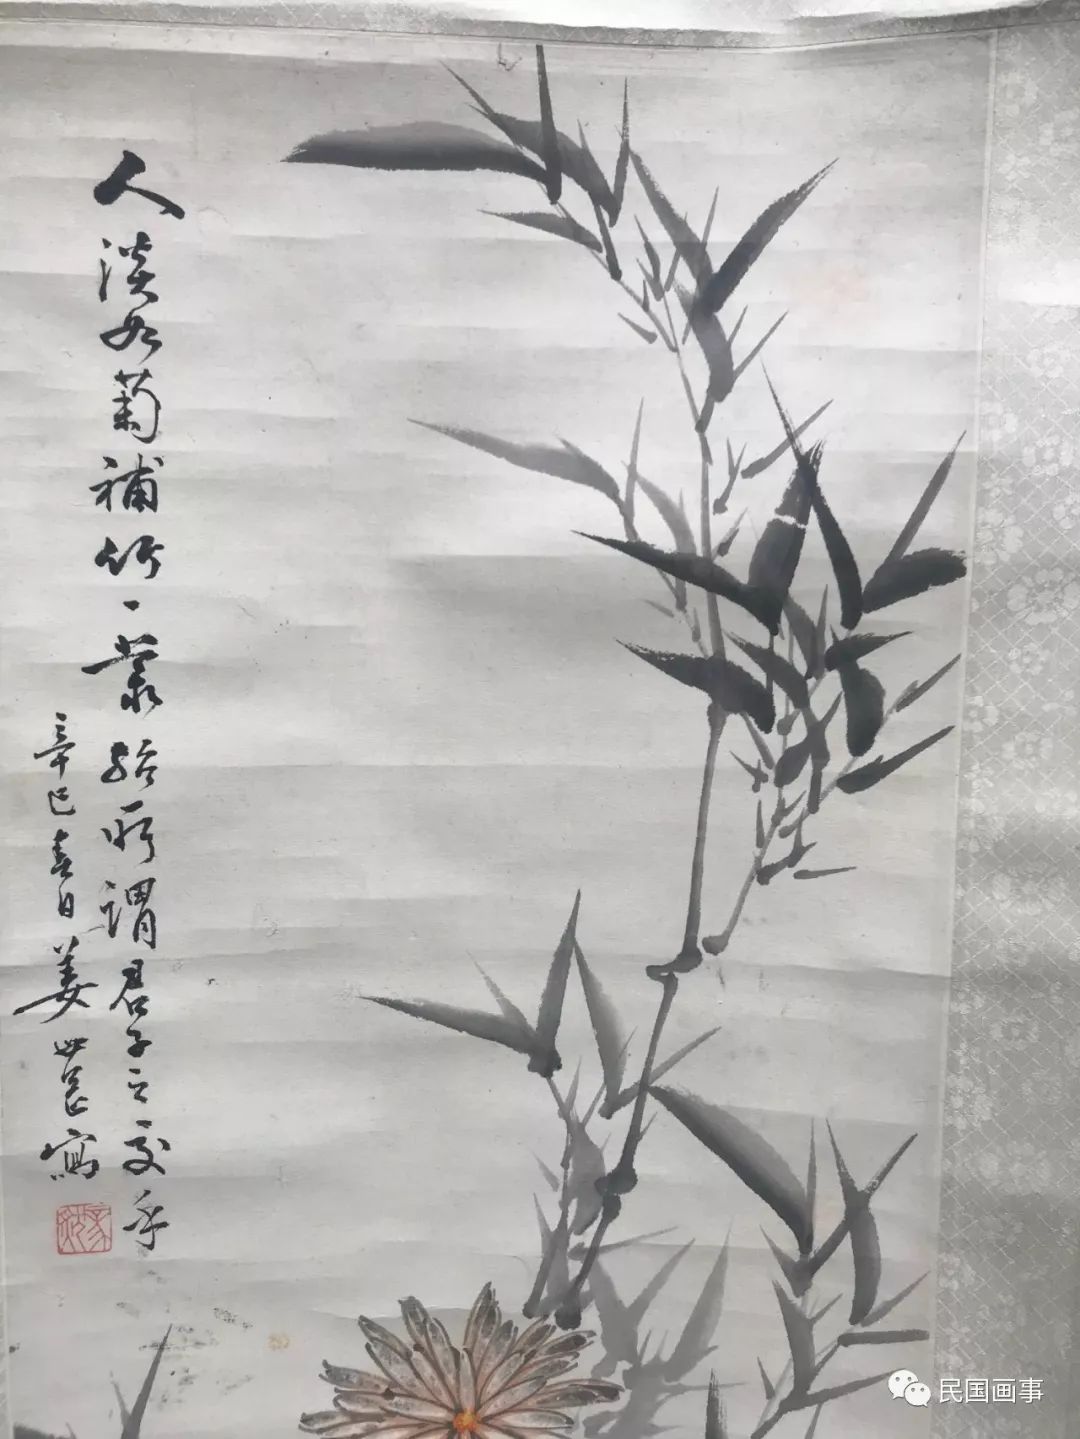 人淡如菊補竹一叢殆所謂君子之交乎
辛巳春日姜世昌寫
民国画事